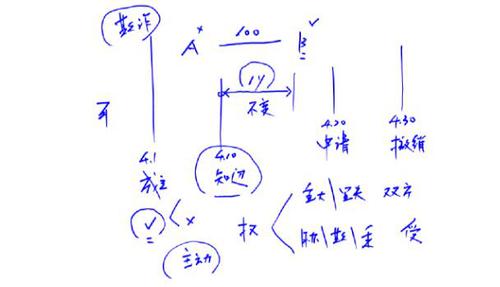 欺诈
A × 100 B ✓
1y
不变
4.1 4.10 4.20 4.30
成立 知道 申请 撤销
✓ < ×
主动
权
重大 | 显失 双方
胁 | 欺 | 重 受